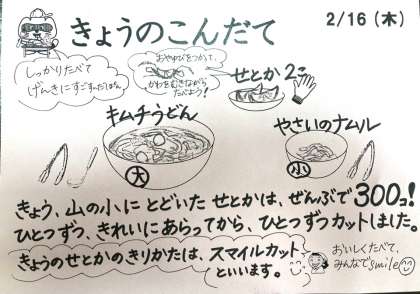 きょうのこんだて
2/16 (木)
しっかりたべて
げんきにすごすのだぽん
おやゆびをつかって、
かわをむきながら
たべよう!
せとか 2こ
キムチうどん
大
やさいのナムル
小
きょう、山の小にとどいたせとかは、ぜんぶで300コ!
ひとつずつ、きれいにあらってから、ひとつずつカットしました。
きょうのせとかのきりかたは、スマイルカット
といいます。
おいしくたべて、
みんなでsmile